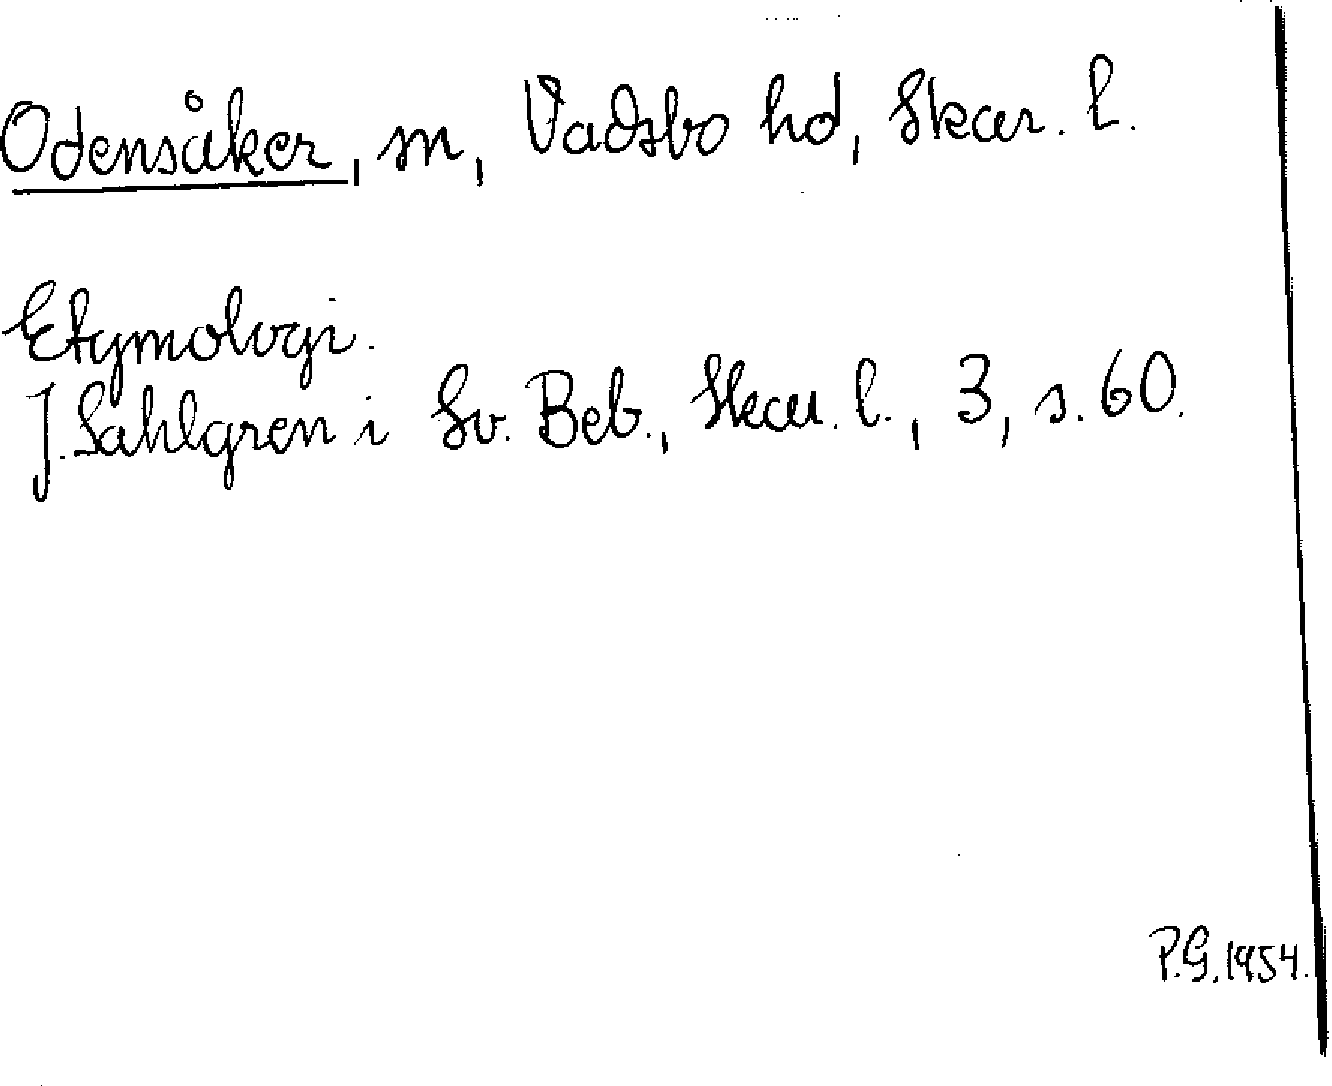 Odensåker, sn, Vadsbo hd, Skar. l.
Etymologi.
J. Sahlgren i Sv. Beb., Skar. l., 3, s. 60.
P.G. 1954.